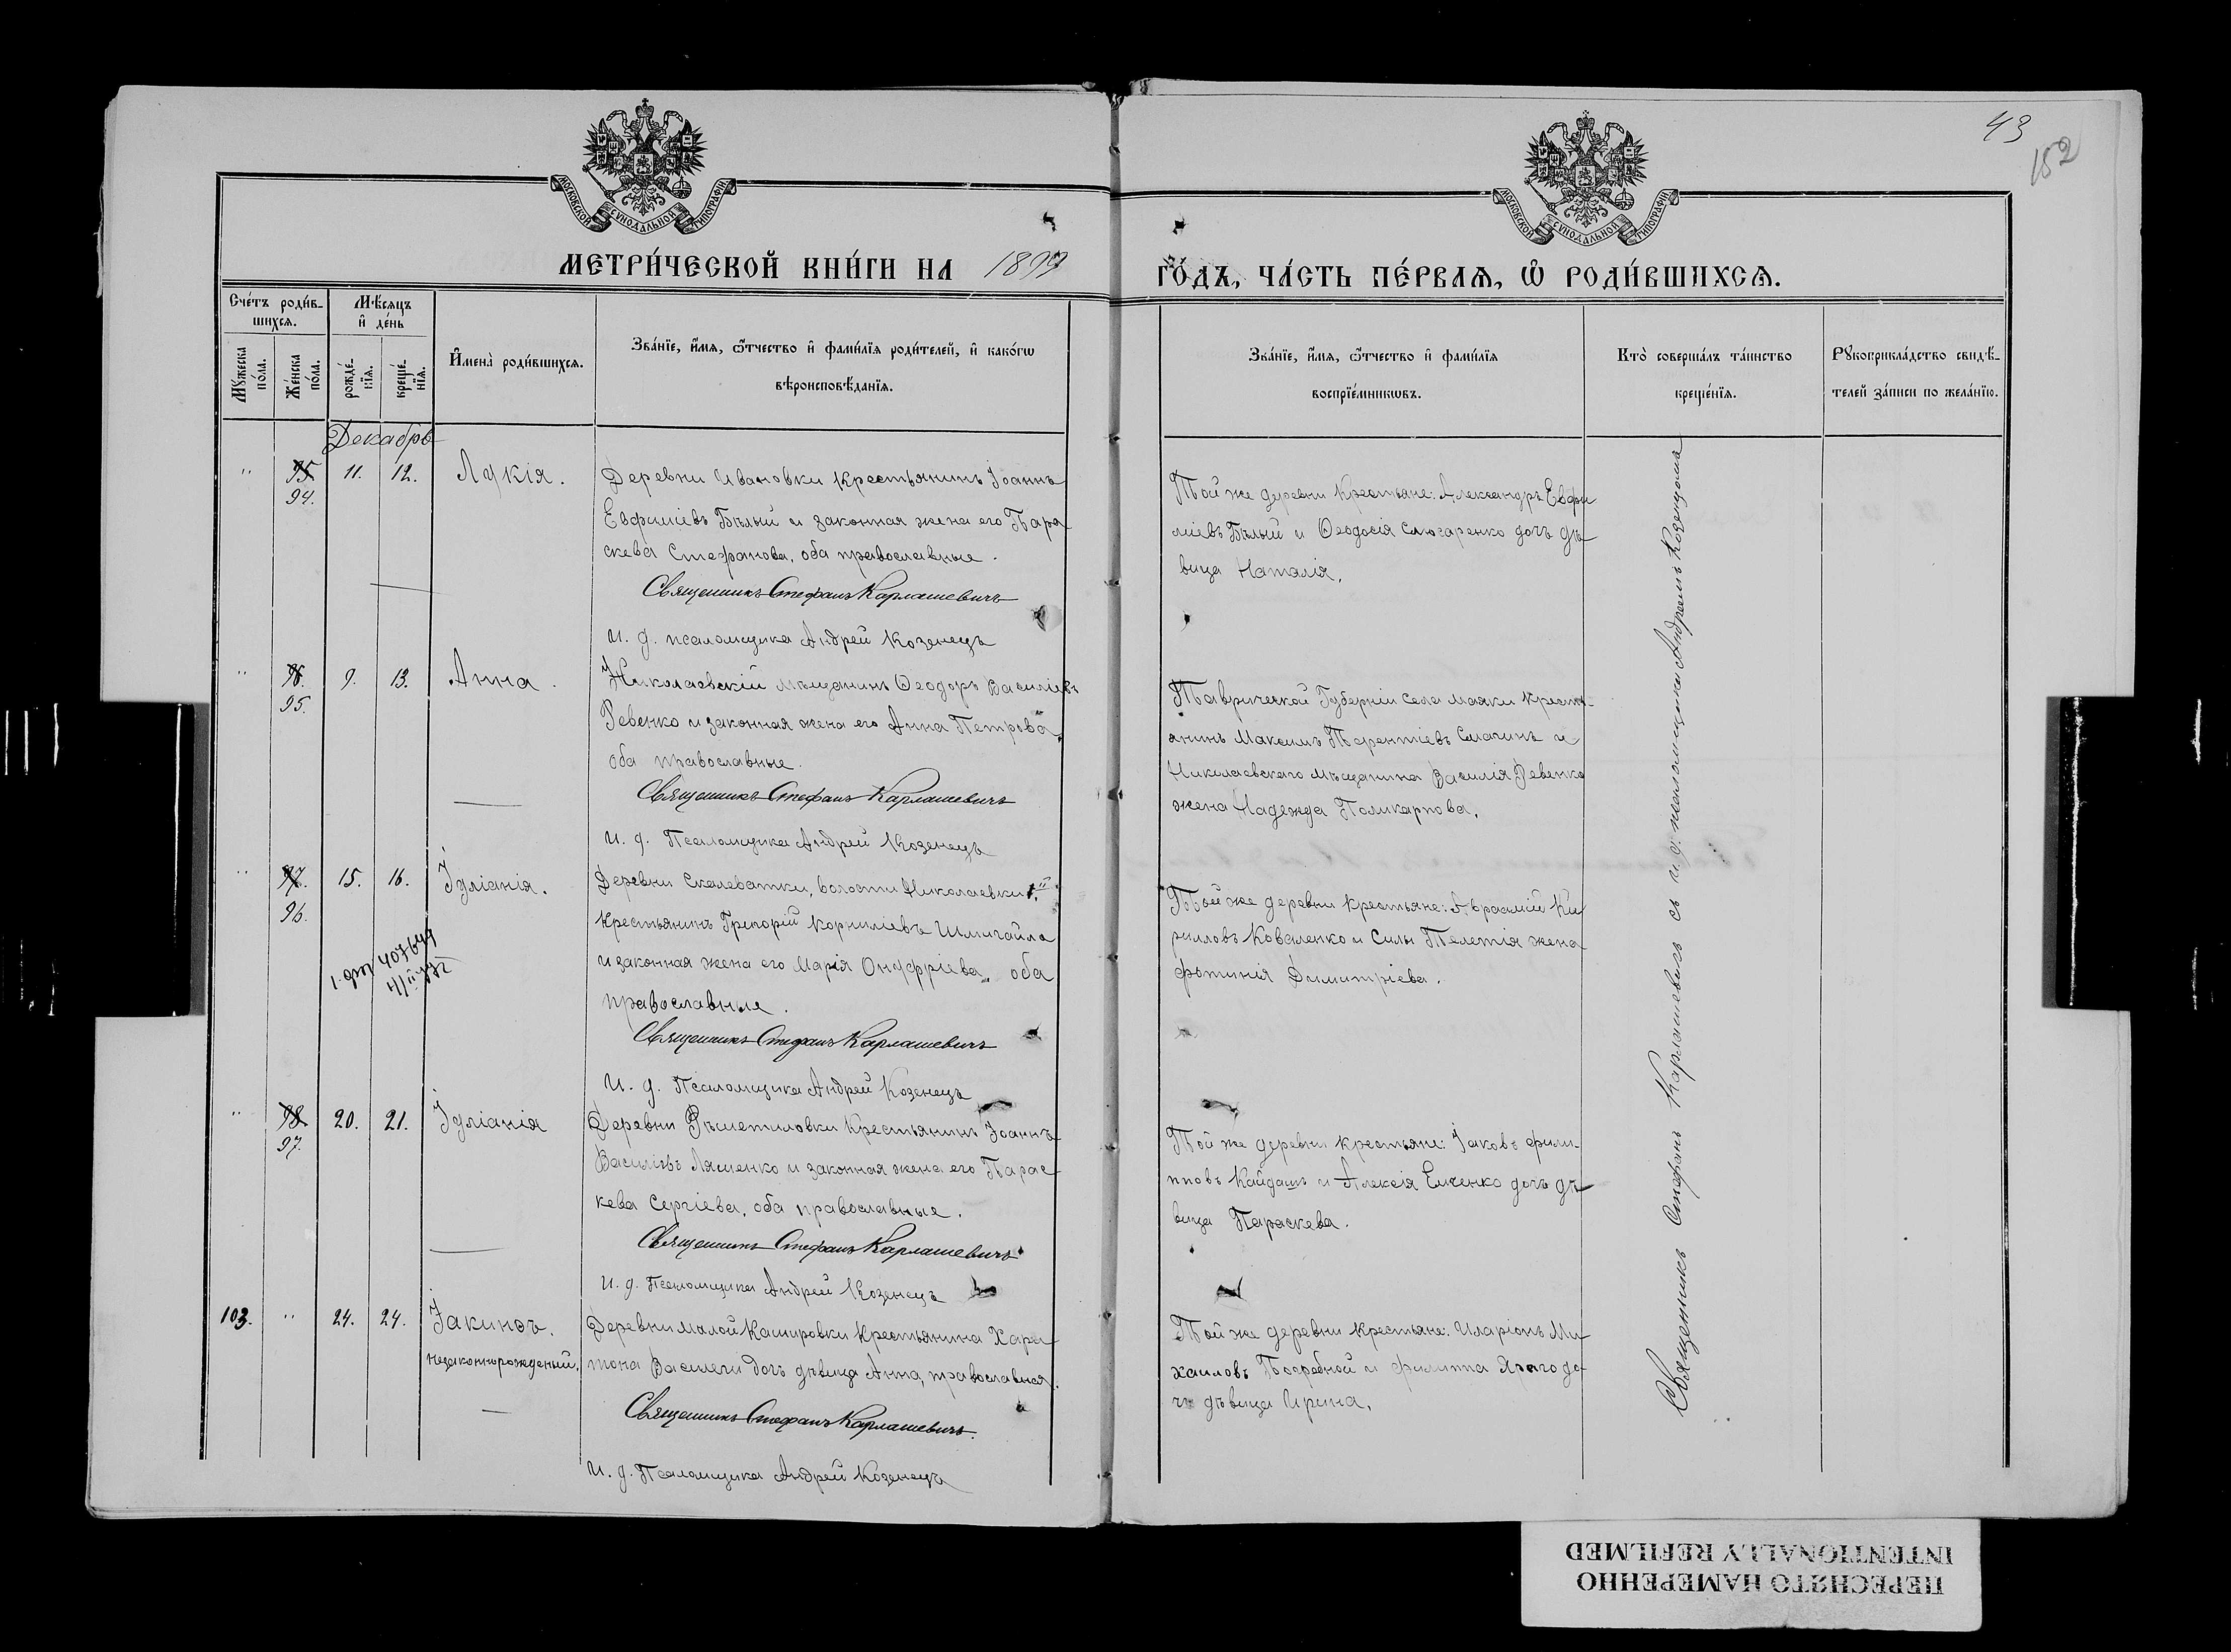 43
152
МОСКОВСКОЙ СѴНОДАЛЬНОЙ ТИПОГРАФІИ.
МОСКОВСКОЙ СѴНОДАЛЬНОЙ ТИПОГРАФІИ.
МЕТРИ́ЧЕСКОЙ КНИ́ГИ НА 1899
ГО́ДЪ, ЧА́СТЬ ПЕ́РВАѦ, Ѿ РОДИ́ВШИХСѦ.
Сче́тъ роди́в-
шихсѧ.
Мѣ́сѧцъ
и҆ де́нь
Мꙋ́жеска по́ла.
Же́нска по́ла.
рожде́-
нїѧ.
креще́-
нїѧ.
И҆мена̀ роди́вшихсѧ.
Зва́нїе, и҆́мѧ, ѻ҆́тчество и҆ фами́лїѧ роди́телей, и҆ како́гѡ
вѣроисповѣ́данїѧ.
Зва́нїе, и҆́мѧ, ѻ҆́тчество и҆ фами́лїѧ
воспрїе́мникѡвъ.
Кто̀ соверша́лъ та́инство
креще́нїѧ.
Рꙋкоприкла́дство свидѣ́-
телей за́писи по жела́нїю.
Декабрь
" 95 11. 12. Лукія.
94.
Деревни Ивановки крестьянинъ Іоаннъ
Евфиміевъ Бѣлый и законная жена его Пара
скева Стефанова, оба православные.
Священникъ Стефанъ Карлашевичъ
И. д. псаломщика Андрей Козенецъ
Той же деревни крестьяне: Александръ Евфи
міевъ Бѣлый и Ѳеодосія Слюсаренко дочь дѣ
вица Наталія.
" 96. 9. 13. Анна.
95.
Николаевскій мѣщанинъ Ѳеодоръ Василіевъ
Ревенко и законная жена его Анна Петрова,
оба православные.
Священникъ Стефанъ Карлашевичъ
И. д. Псаломщика Андрей Козенецъ
Таврической Губерніи села Маяки крест-
янинъ Максимъ Терентіевъ Смагинъ и
Николаевскаго мѣщанина Василія Ревенко
жена Надежда Поликарпова.
" 97. 15. 16. Іуліанія.
96.
Деревни Скалеватки, волости Николаевки
крестьянинъ Григорій Корниліевъ Шмигайло
и законная жена его Марія Онуфріева, оба
православные.
Священникъ Стефанъ Карлашевичъ
И. д. Псаломщика Андрей Козенецъ
Той же деревни крестьяне: Авраамій Ки
рилловъ Коваленко и Силы Телетія жена
Фотинія Димитріева.
407649
" 98 20. 21. Іуліанія
97.
Деревни Рѣшетиловки крестьянинъ Іоаннъ
Василіевъ Ляшенко и законная жена его Парас
кева Сергіева, оба православные.
Священникъ Стефанъ Карлашевичъ
И. д. Псаломщика Андрей Козенецъ
Той же деревни крестьяне: Іаковъ Фили-
пповъ Кайдашъ и Алексія Емченко дочь дѣ
вица Параскева.
103. " 24. 24. Іакинѳъ.
незаконнорожденый.
Деревни Малой Кашировки крестьянина Хари
тона Василеги дочь дѣвица Анна, православная.
Священникъ Стефанъ Карлашевичъ.
И. д. Псаломщика Андрей Козенецъ
Той же деревни крестьяне: Иларіонъ Ми
хаиловъ Погребной и Филиппа Яраго до
чь дѣвица Ирина.
Священникъ Стефанъ Карлашевичъ съ и. д. псаломщика Андреемъ Козенцомъ
ПЕРЕСНЯТО НАМЕРЕННО
INTENTIONALLY REFILMED